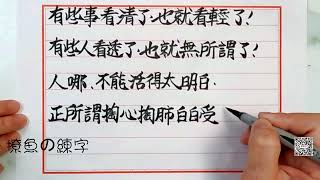 有些事看清了，也就看輕了！
有些人看透了，也就無所謂了！
人哪、不能活得太明白.
正所謂掏心掏肺白白受
療魚の練字